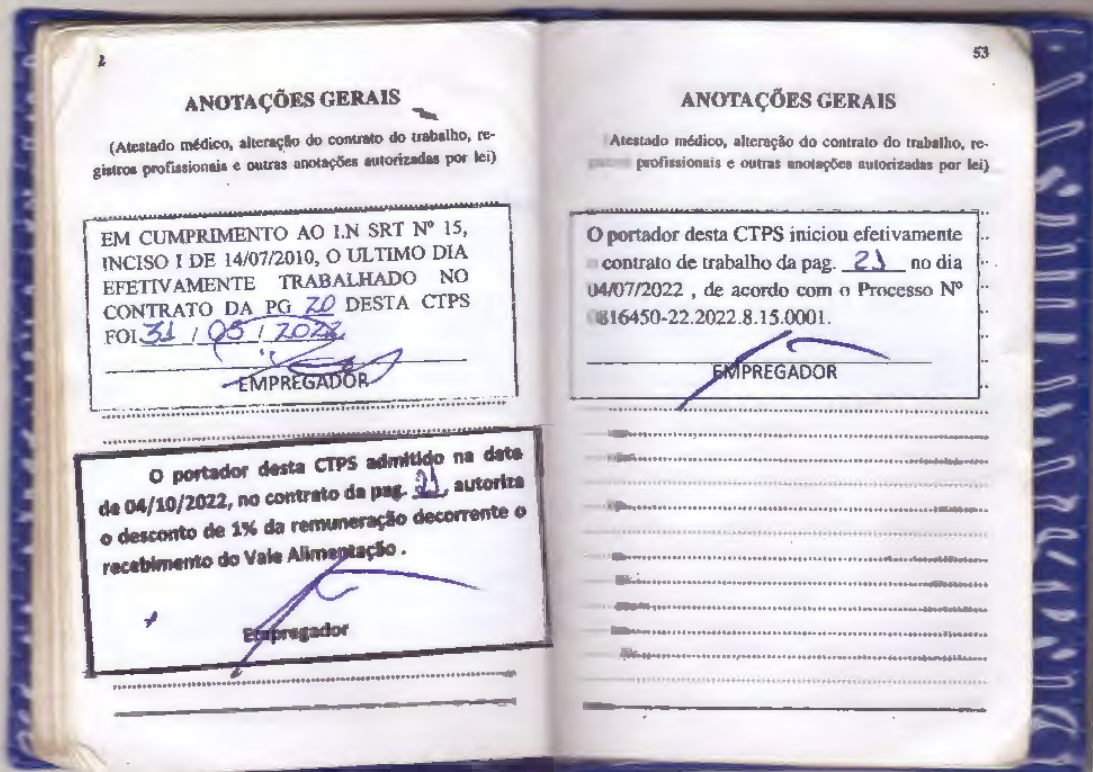 2
ANOTAÇÕES GERAIS
(Atestado médico, alteração do contrato do trabalho, re-
gistros profissionais e outras anotações autorizadas por lei)
EM CUMPRIMENTO AO I.N SRT Nº 15,
INCISO I DE 14/07/2010, O ULTIMO DIA
EFETIVAMENTE TRABALHADO NO
CONTRATO DA PG 20 DESTA CTPS
FOI 31 / 05 / 2022
EMPREGADOR
O portador desta CTPS admitido na data
de 04/10/2022, no contrato da pag. 21, autoriza
o desconto de 1% da remuneração decorrente o
recebimento do Vale Alimentação .
Empregador
53
ANOTAÇÕES GERAIS
(Atestado médico, alteração do contrato do trabalho, re-
gistros profissionais e outras anotações autorizadas por lei)
O portador desta CTPS iniciou efetivamente
o contrato de trabalho da pag. 21 no dia
04/07/2022 , de acordo com o Processo Nº
0816450-22.2022.8.15.0001.
EMPREGADOR